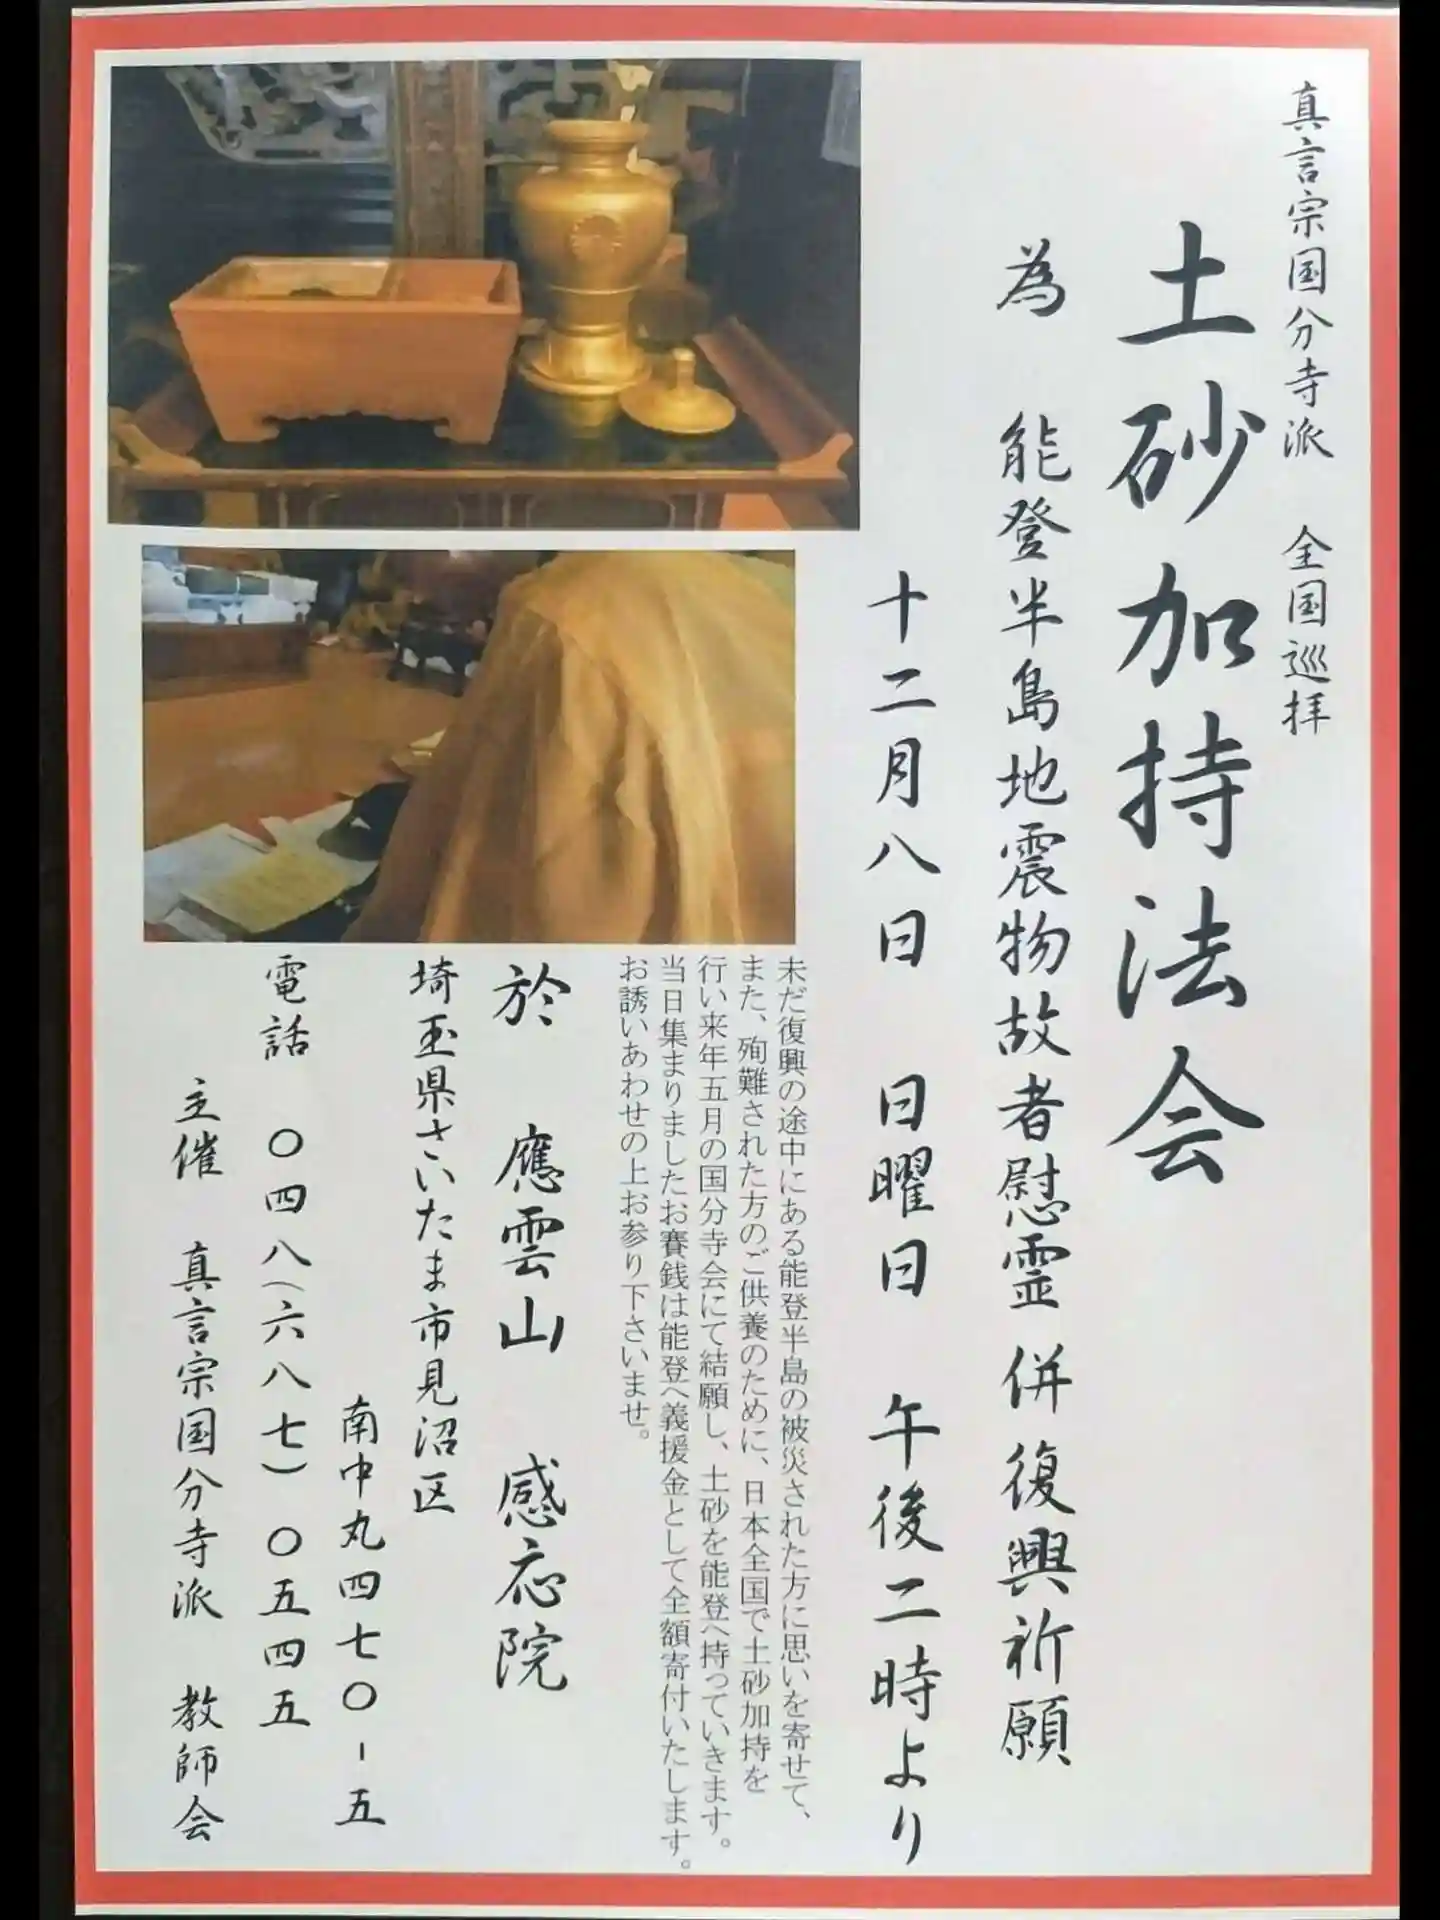 真言宗国分寺派　全国巡拝
土砂加持法会
為　能登半島地震物故者慰霊　併　復興祈願
十二月八日　日曜日　午後二時より
未だ復興の途中にある能登半島の被災された方に思いを寄せて、
また、殉難された方のご供養のために、日本全国で土砂加持を
行い来年五月の国分寺会にて結願し、土砂を能登へ持っていきます。
当日集まりましたお賽銭は能登へ義援金として全額寄付いたします。
お誘いあわせの上お参り下さいませ。
於　應雲山　感応院
埼玉県さいたま市見沼区
南中丸四七〇－五
電話　〇四八（六八七）〇五四五
主催　真言宗国分寺派　教師会